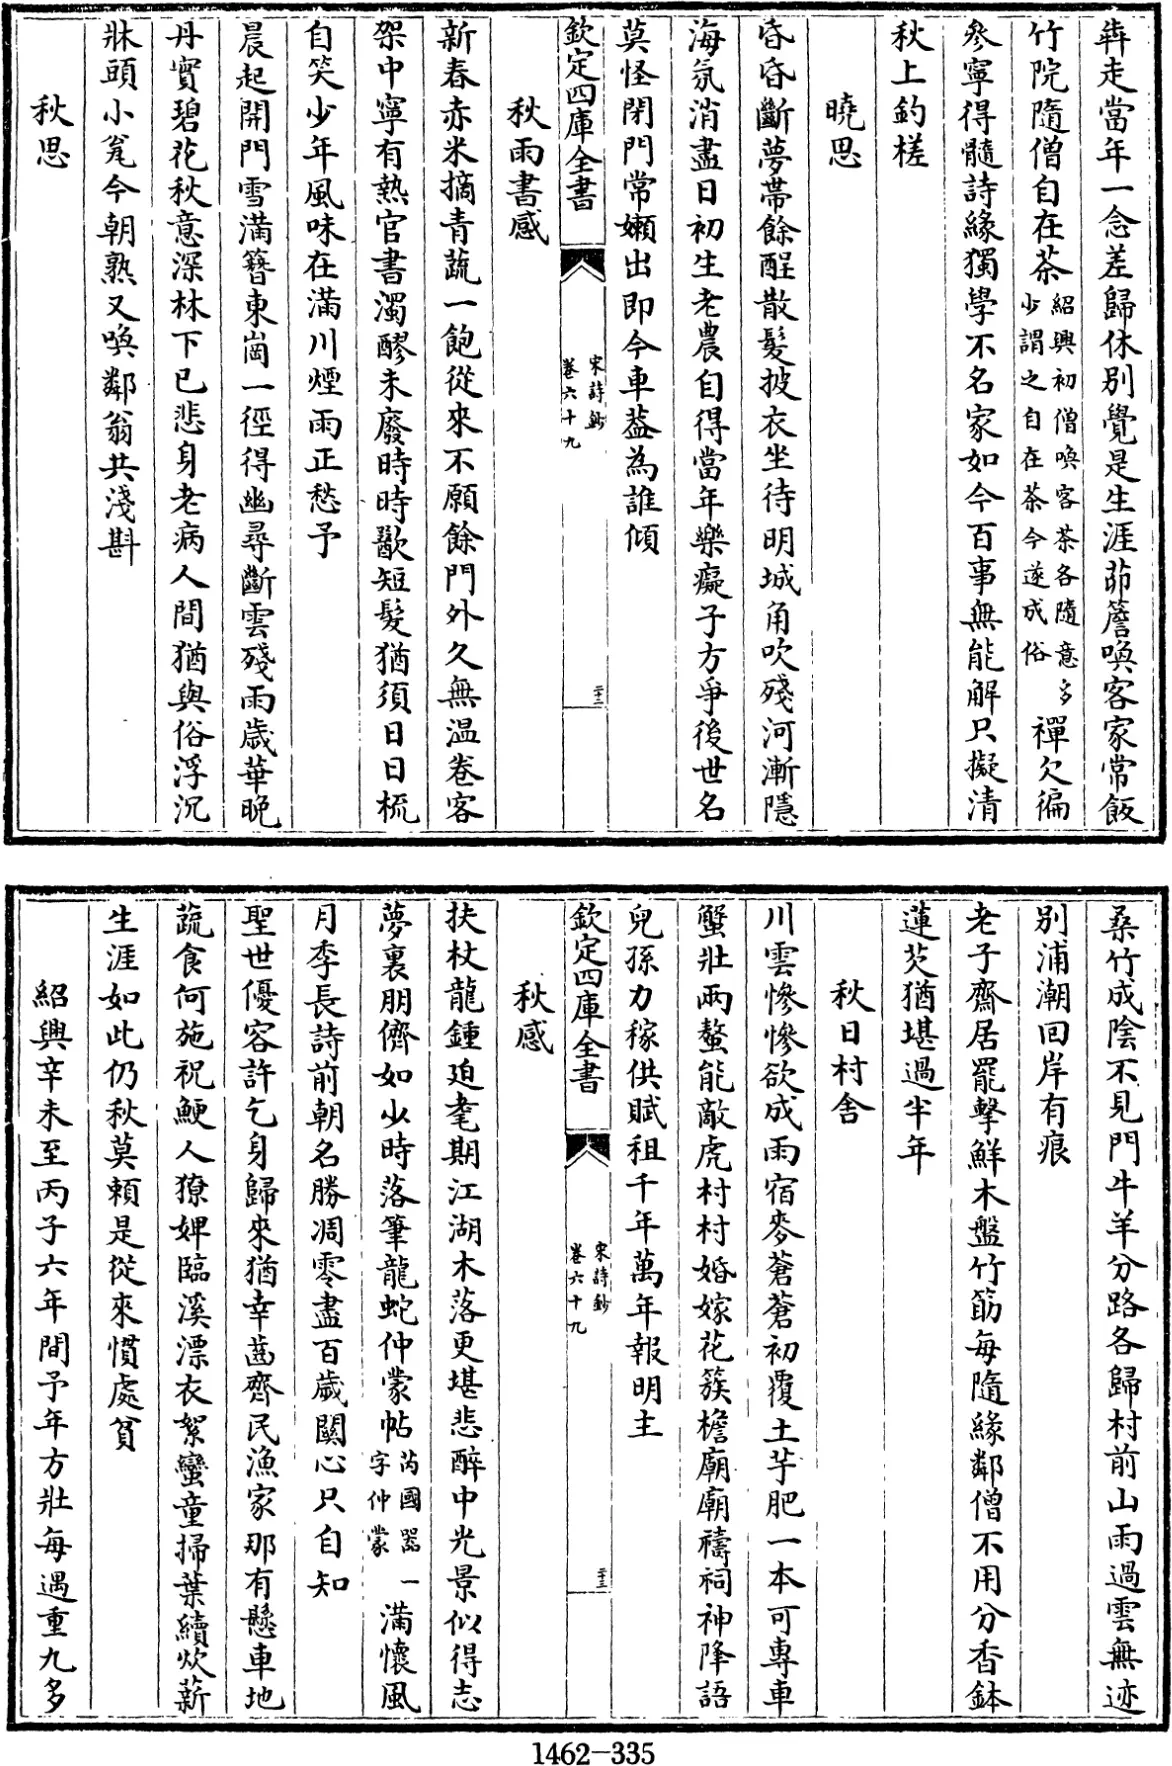 犇走當年一念差歸休別覺是生涯茆簷喚客家常飯
竹院隨僧自在茶紹興初僧喚客茶各隨意多少謂之自在茶今遂成俗禪欠徧
參寧得髓詩緣獨學不名家如今百事無能解只擬清
秋上釣槎
曉思
昏昏斷夢帶餘酲散髮披衣坐待明城角吹殘河漸隱
海氛消盡日初生老農自得當年樂癡子方爭後世名
莫怪閉門常嬾出即今車蓋為誰傾
欽定四庫全書
宋詩鈔
卷六十九
二十二
秋雨書感
新春赤米摘青蔬一飽從來不願餘門外久無溫卷客
架中寧有熱官書濁醪未廢時時歠短髮猶須日日梳
自笑少年風味在滿川煙雨正愁予
晨起開門雪滿簪東崗一徑得幽尋斷雲殘雨歲華晚
丹實碧花秋意深林下已悲身老病人間猶與俗浮沉
牀頭小瓮今朝熟又喚鄰翁共淺斟
秋思
桑竹成陰不見門牛羊分路各歸村前山雨過雲無迹
別浦潮回岸有痕
老子齋居罷擊鮮木盤竹筯每隨緣鄰僧不用分香鉢
蓮芡猶堪過半年
秋日村舍
川雲慘慘欲成雨宿麥蒼蒼初覆土芋肥一本可專車
蟹壯兩螯能敵虎村村婚嫁花簇檐廟廟禱祠神降語
兒孫力稼供賦租千年萬年報明主
欽定四庫全書
宋詩鈔
卷六十九
二十三
秋感
扶杖龍鍾迫耄期江湖木落更堪悲醉中光景似得志
夢裏朋儕如少時落筆龍蛇仲蒙帖芮國器字仲蒙一滿懷風
月季長詩前朝名勝凋零盡百歲關心只自知
聖世優容許乞身歸來猶幸齒齊民漁家那有懸車地
蔬食何施祝鯁人獠婢臨溪漂衣絮蠻童掃葉續炊薪
生涯如此仍秋莫賴是從來慣處貧
紹興辛未至丙子六年間予年方壯每遇重九多
1462-335